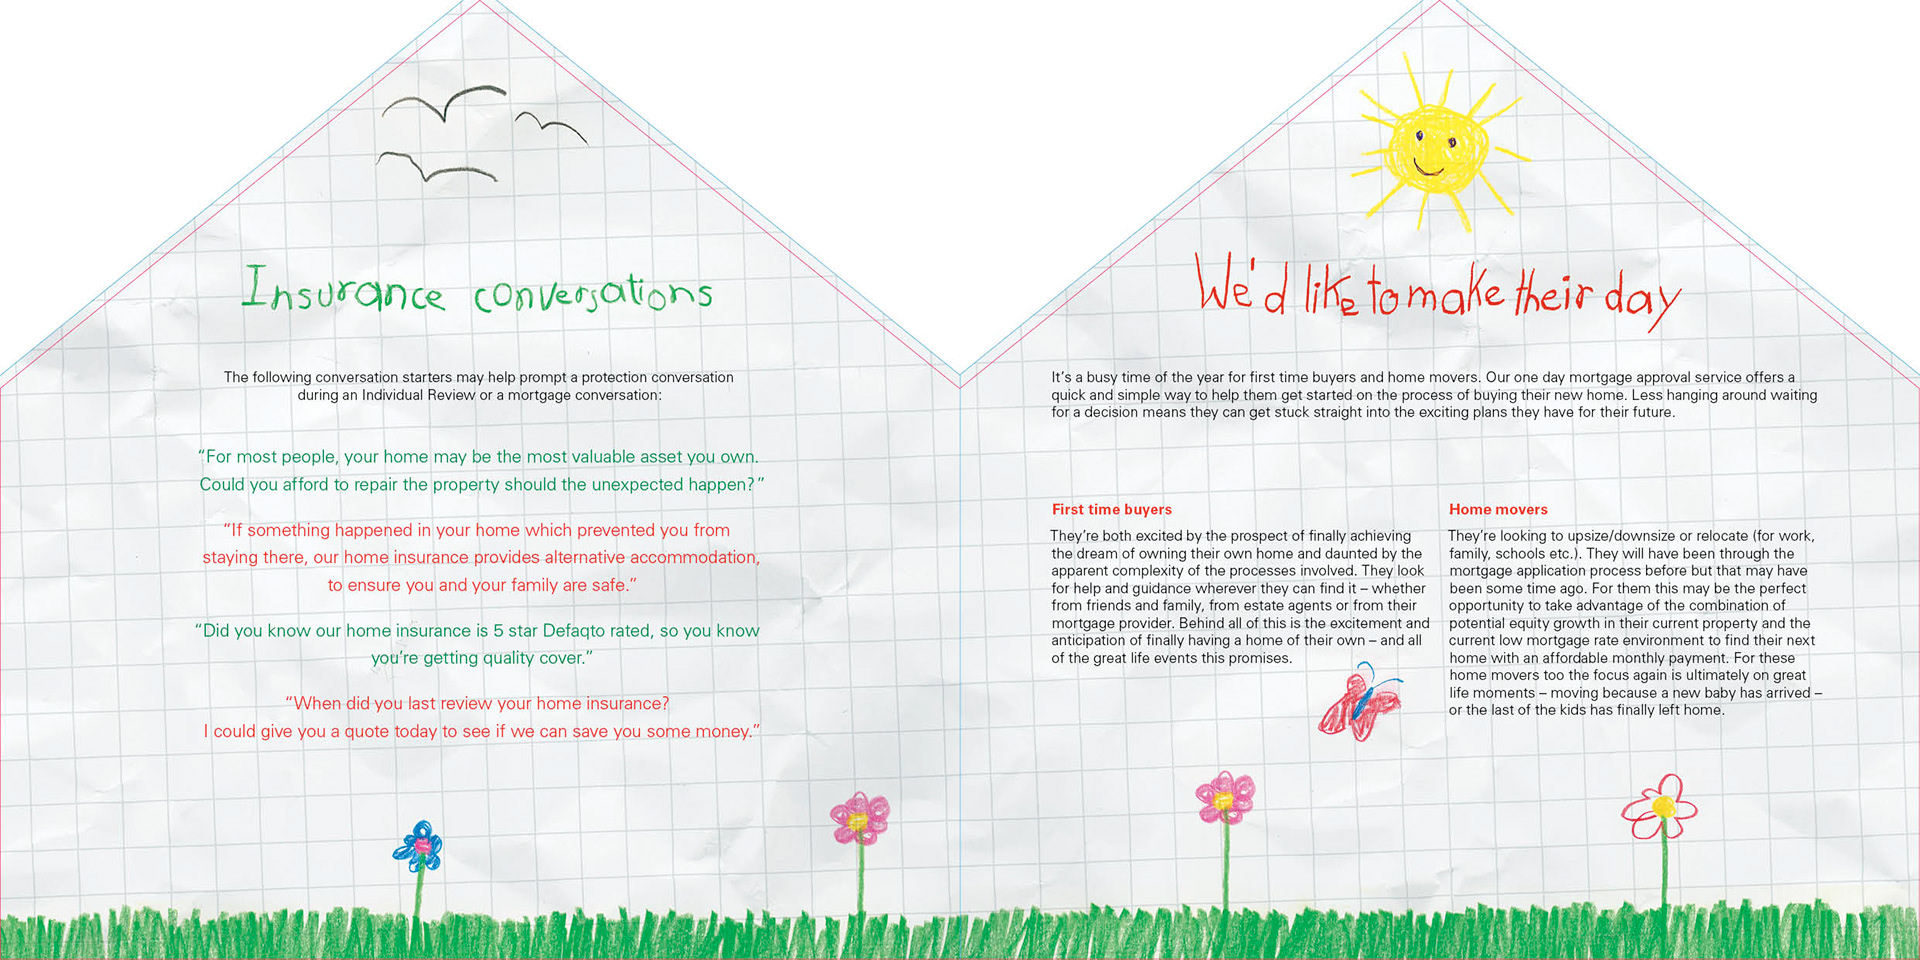 Insurance conversations
The following conversation starters may help prompt a protection conversation
during an Individual Review or a mortgage conversation:
“For most people, your home may be the most valuable asset you own.
Could you afford to repair the property should the unexpected happen?”
“If something happened in your home which prevented you from
staying there, our home insurance provides alternative accommodation,
to ensure you and your family are safe.”
“Did you know our home insurance is 5 star Defaqto rated, so you know
you’re getting quality cover.”
“When did you last review your home insurance?
I could give you a quote today to see if we can save you some money.”
We'd like to make their day
It’s a busy time of the year for first time buyers and home movers. Our one day mortgage approval service offers a
quick and simple way to help them get started on the process of buying their new home. Less hanging around waiting
for a decision means they can get stuck straight into the exciting plans they have for their future.
First time buyers
They’re both excited by the prospect of finally achieving
the dream of owning their own home and daunted by the
apparent complexity of the processes involved. They look
for help and guidance wherever they can find it – whether
from friends and family, from estate agents or from their
mortgage provider. Behind all of this is the excitement and
anticipation of finally having a home of their own – and all
of the great life events this promises.
Home movers
They’re looking to upsize/downsize or relocate (for work,
family, schools etc.). They will have been through the
mortgage application process before but that may have
been some time ago. For them this may be the perfect
opportunity to take advantage of the combination of
potential equity growth in their current property and the
current low mortgage rate environment to find their next
home with an affordable monthly payment. For these
home movers too the focus again is ultimately on great
life moments – moving because a new baby has arrived –
or the last of the kids has finally left home.